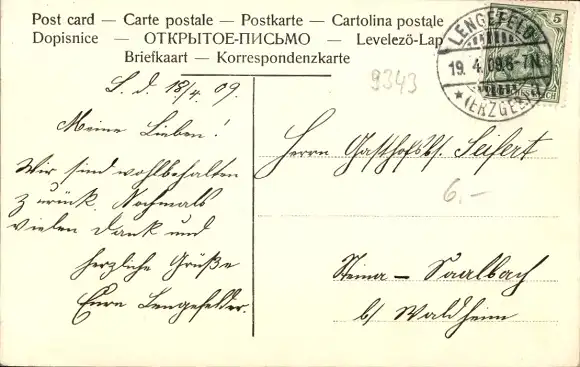 Post card — Carte postale — Postkarte — Cartolina postale
Dopisnice — ОТКРЫТОЕ-ПИСЬМО — Levelező-Lap
Briefkaart — Korrespondenzkarte
LENGEFELD
19.4.09.6-7N
★(ERZGEB.)★
5
9343
L. d. 18/4. 09.
Meine Lieben!
Wir sind wohlbehalten
zurück. Nochmals
vielen Dank und
herzliche Grüße
Eure Lengefelder.
Herrn Gasthofsbs. Seifert
6.-
Steina — Saalbach
b/ Waldheim